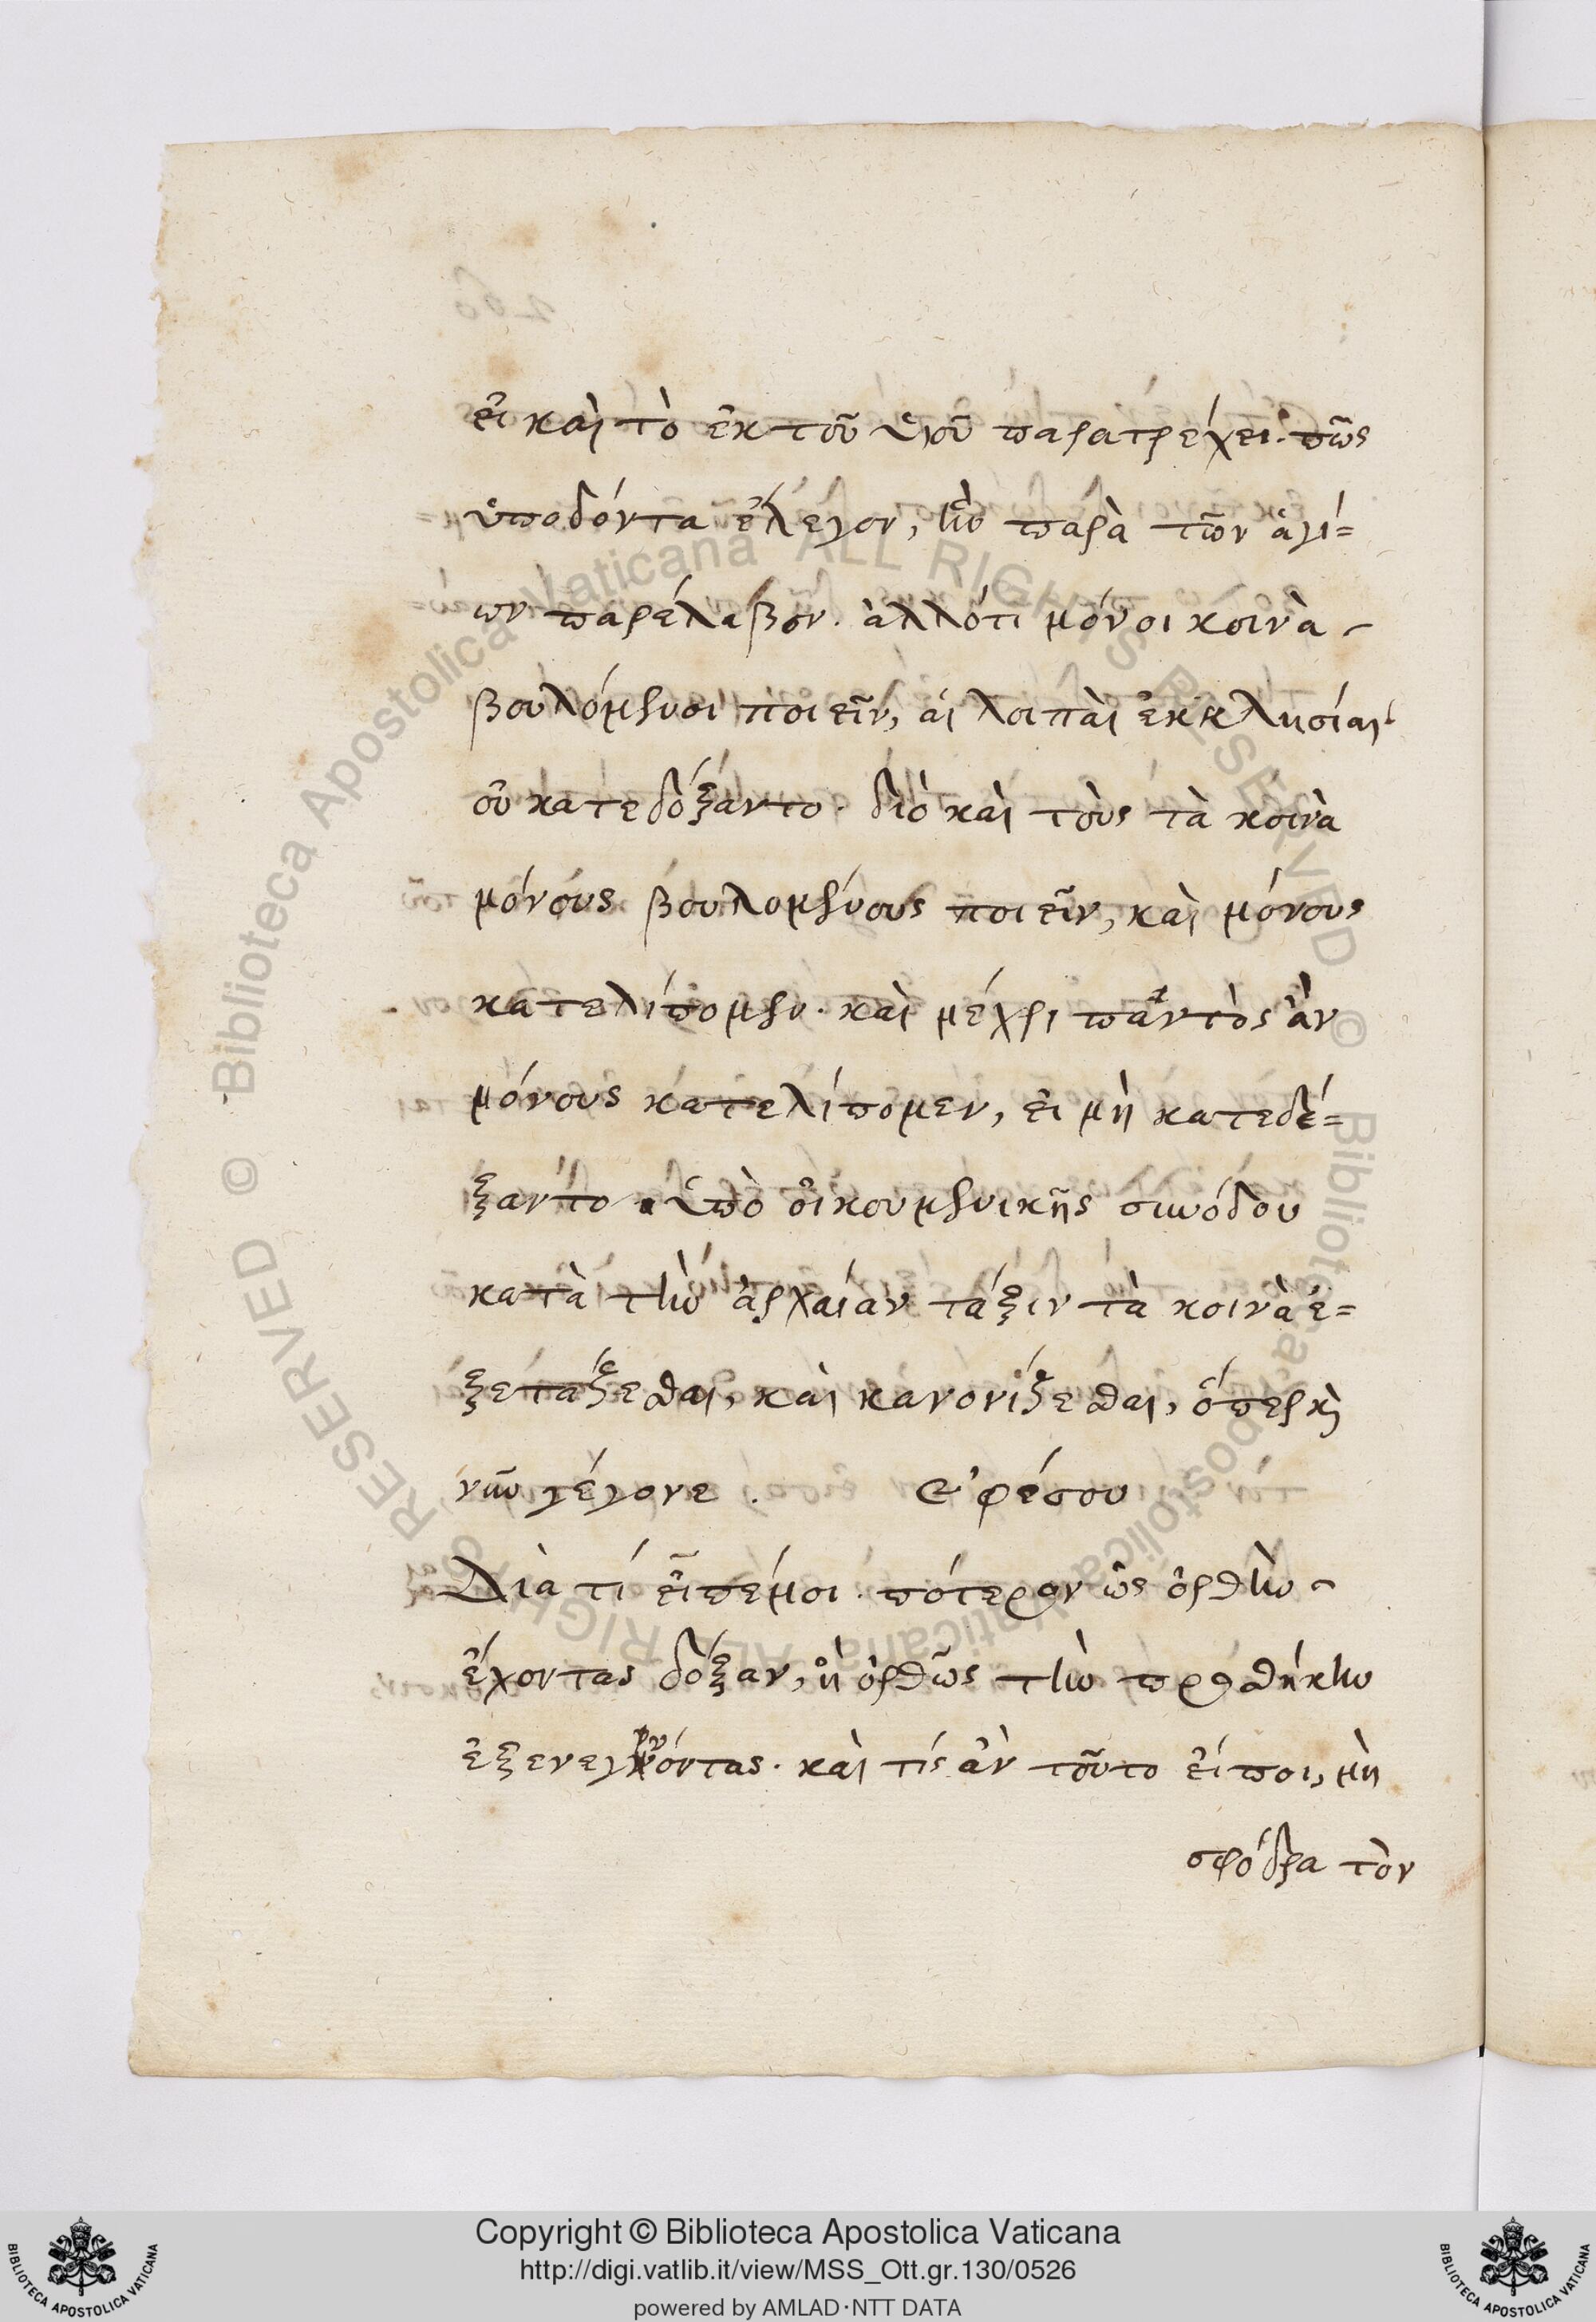 εἰ καὶ τὸ ἐκ τοῦ ὑιοῦ παρατρέχει. πῶς
ὑποδόντα ἔλεγον, ἣν παρὰ τῶν ἁγί=
ων παρέλαβον. ἀλλότι μόνοι κοινὰ
βουλόμενοι ποιεῖν, αἱ λοιπαὶ ἐκκλησίαι
οὐ κατεδέξαντο. διὸ καὶ τοὺς τὰ κοινὰ
μόνους βουλομένους ποιεῖν, καὶ μόνους
κατελίπομεν. καὶ μέχρι παντὸς ἂν
μόνους κατελίπομεν, εἰ μὴ κατεδέ=
ξαντο ὑπὸ οἰκουμενικῆς συνόδου
κατὰ τὴν ἀρχαίαν τάξιν τὰ κοινὰ ἐ=
ξετάζεσθαι, καὶ κανονίζεσθαι, ὅπερ κὶ
νῦν γέγονε. Ἐφέσου
Διὰ τί εἶπέ μοι. πότερον ὡς ὀρθὴν
ἔχοντας δόξαν, ἢ ὀρθῶς τὴν προσθήκην
ἐξενεγκόντας. καὶ τίς ἂν τοῦτο εἴποι, μὴ
σφόδρα τὸν
Copyright © Biblioteca Apostolica Vaticana
http://digi.vatlib.it/view/MSS_Ott.gr.130/0526
powered by AMLAD·NTT DATA
BIBLIOTECA APOSTOLICA VATICANA
BIBLIOTECA APOSTOLICA VATICANA
© Biblioteca Apostolica Vaticana ALL RIGHTS RESERVED
© Biblioteca Apostolica Vaticana ALL RIGHTS RESERVED